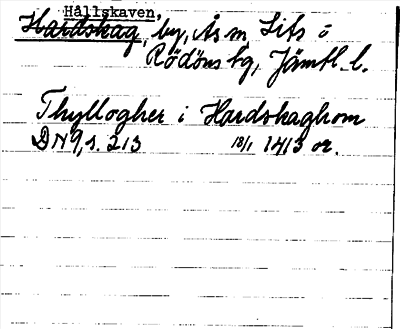 Hållskaven,
Hardskag, by, Ås sn, Lits o
Rödöns tg, Jämtl. l.
Thyllogher i Hardskaghom
DN 9, s. 213 18/1 1413 or.